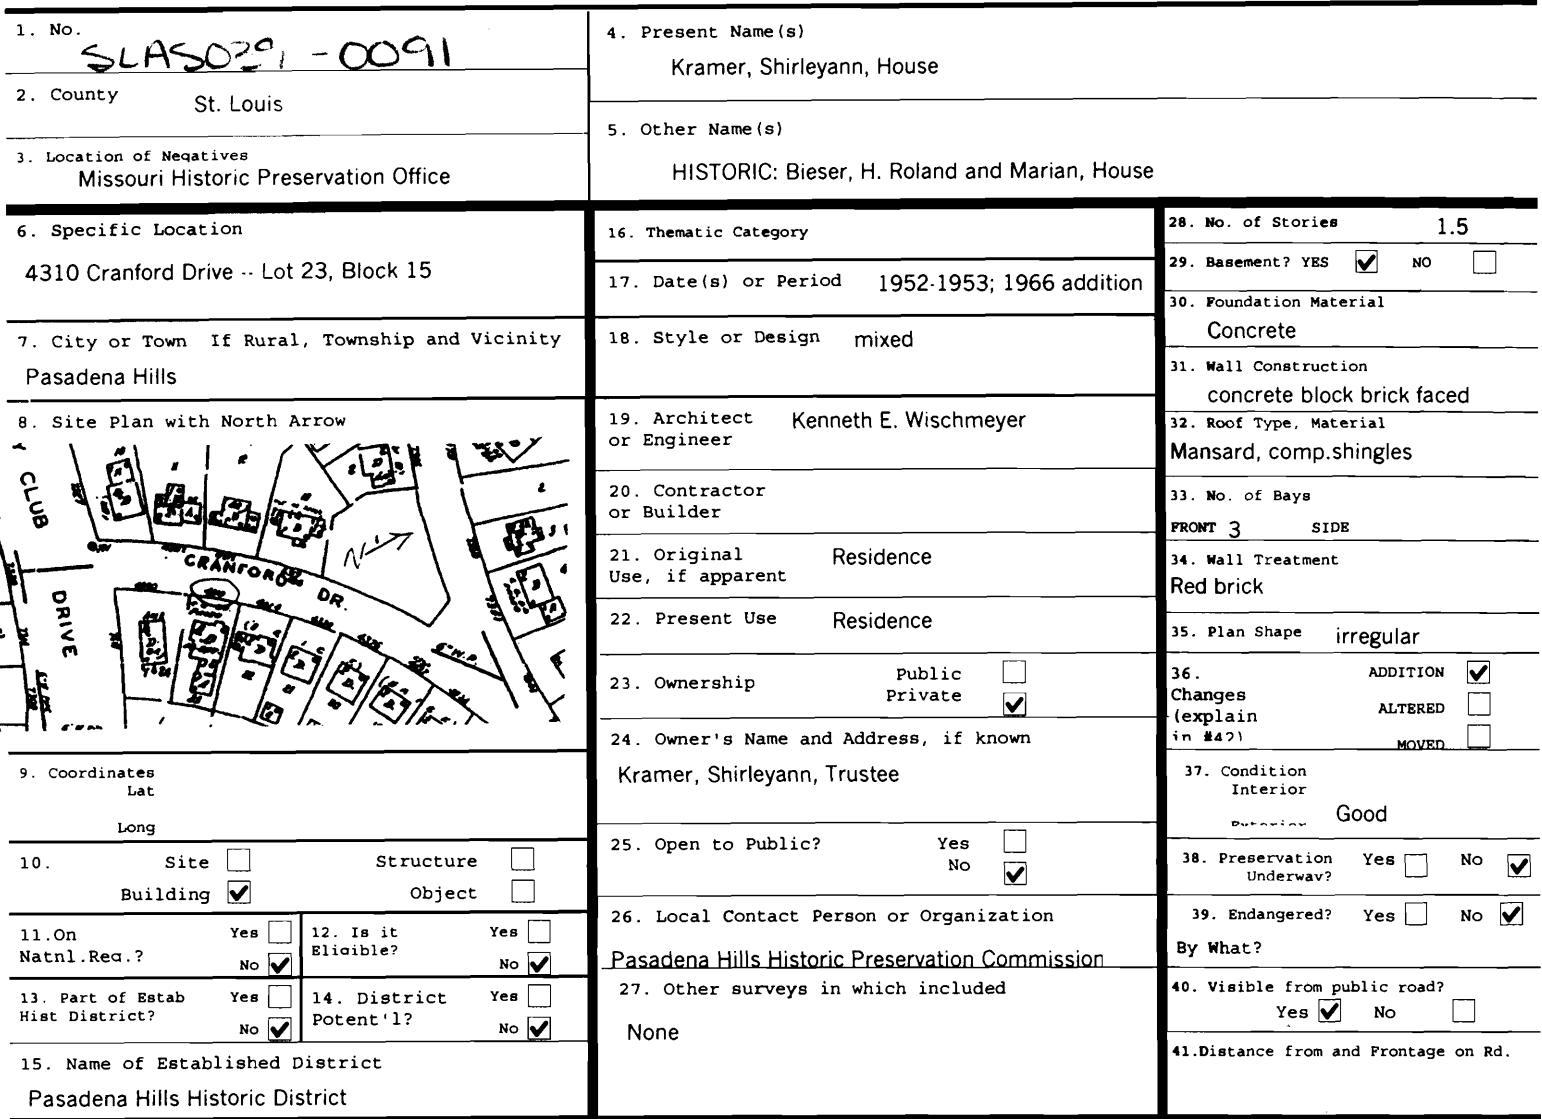 1. No.
SLAS029-0091
2. County
St. Louis
3. Location of Negatives
Missouri Historic Preservation Office
4. Present Name(s)
Kramer, Shirleyann, House
5. Other Name(s)
HISTORIC: Bieser, H. Roland and Marian, House
6. Specific Location
4310 Cranford Drive -- Lot 23, Block 15
7. City or Town If Rural, Township and Vicinity
Pasadena Hills
8. Site Plan with North Arrow
CLUB
DRIVE
CRANFORD DR.
6"W.P.
9. Coordinates
Lat
Long
10. Site Structure
Building Object
11.On Natnl.Reg.? Yes No
12. Is it Eligible? Yes No
13. Part of Estab Hist District? Yes No
14. District Potent'l? Yes No
15. Name of Established District
Pasadena Hills Historic District
16. Thematic Category
17. Date(s) or Period 1952-1953; 1966 addition
18. Style or Design mixed
19. Architect or Engineer Kenneth E. Wischmeyer
20. Contractor
or Builder
21. Original Use, if apparent Residence
22. Present Use Residence
23. Ownership Public
Private
24. Owner's Name and Address, if known
Kramer, Shirleyann, Trustee
25. Open to Public? Yes
No
26. Local Contact Person or Organization
Pasadena Hills Historic Preservation Commission
27. Other surveys in which included
None
28. No. of Stories 1.5
29. Basement? YES NO
30. Foundation Material
Concrete
31. Wall Construction
concrete block brick faced
32. Roof Type, Material
Mansard, comp.shingles
33. No. of Bays
FRONT 3 SIDE
34. Wall Treatment
Red brick
35. Plan Shape irregular
36. Changes (explain in #42) ADDITION
ALTERED
MOVED
37. Condition
Interior
Exterior Good
38. Preservation Underway? Yes No
39. Endangered? Yes No
By What?
40. Visible from public road?
Yes No
41.Distance from and Frontage on Rd.